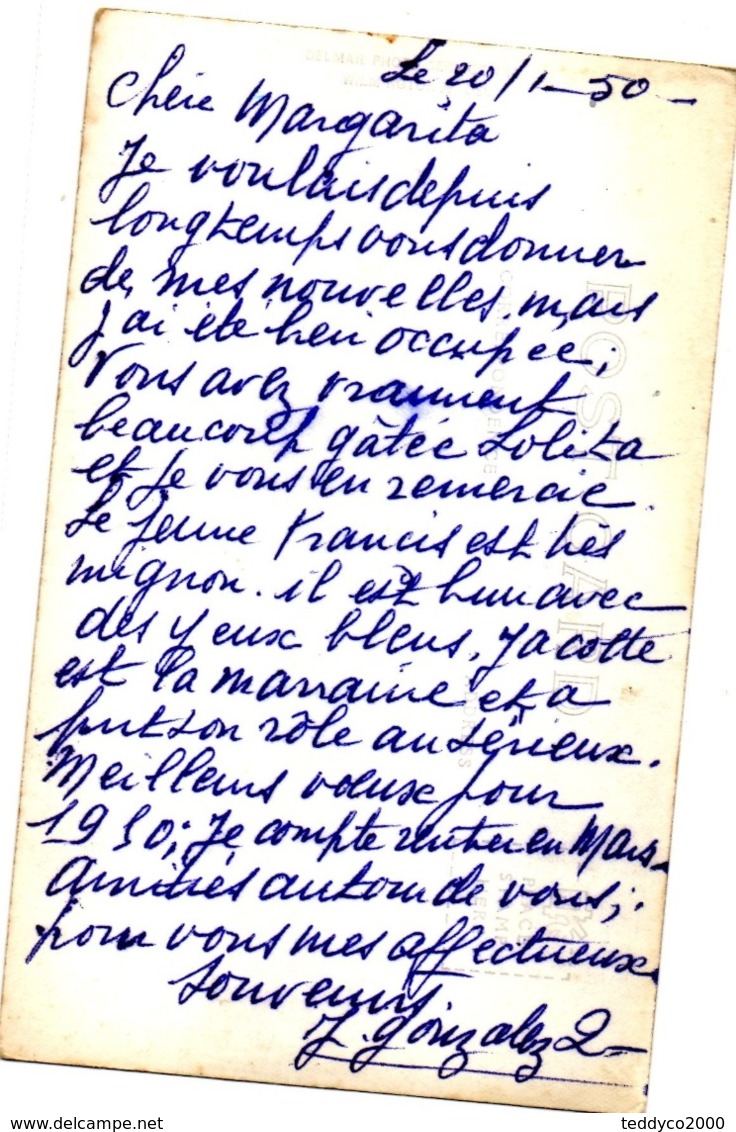 Le 20/1-50-
Chère Margarita
Je voulais depuis
longtemps vous donner
de mes nouvelles, mais
j'ai été bien occupée;
Vous avez vraiment
beaucoup gâtée Lolita
et je vous en remercie.
Le jeune Francis est très
mignon. il est brun avec
des yeux bleus. Jacotte
est la marraine et a
prit son rôle au sérieux.
Meilleurs vœux pour
1950; Je compte rentrer en Mars.
Amitiés autour de vous;
pour vous mes affectueux
souvenirs.
J. Gonzalez
POST CARD
CORRESPONDENCE
ADDRESS
PLACE
STAMP
HERE
teddyco2000